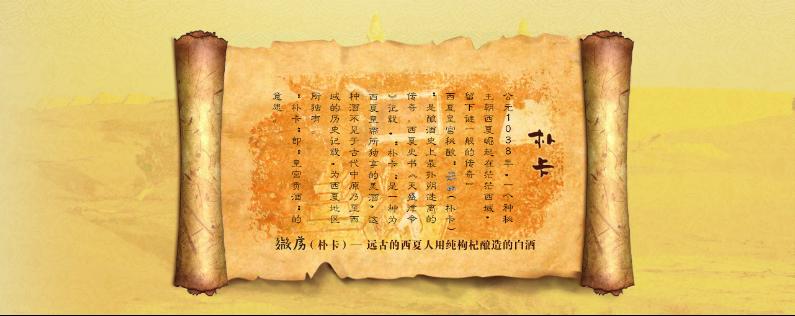 朴卡
公元1038年，一个神秘
王朝西夏崛起在茫茫西域，
留下谜一般的传奇！
西夏皇宫秘酿：（朴卡）
：是酿酒史上最扑朔迷离的
传奇，西夏史书《天盛律令
》记载，：朴卡：是一种为
西夏皇帝所独享的美酒，这
种酒不见于古代中原乃至西
域的历史记载，为西夏地区
所独有
：朴卡：即：皇宫贡酒：的
意思
（朴卡）— 远古的西夏人用纯枸杞酿造的白酒